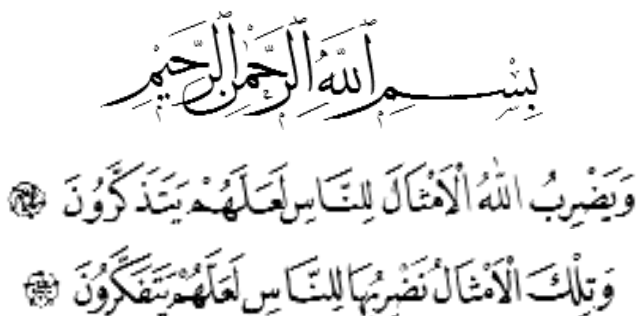 بِسْمِ اللَّهِ الرَّحْمَٰنِ الرَّحِيمِ
وَيَضْرِبُ اللَّهُ الْأَمْثَالَ لِلنَّاسِ لَعَلَّهُمْ يَتَذَكَّرُونَ
وَتِلْكَ الْأَمْثَالُ نَضْرِبُهَا لِلنَّاسِ لَعَلَّهُمْ يَتَفَكَّرُونَ